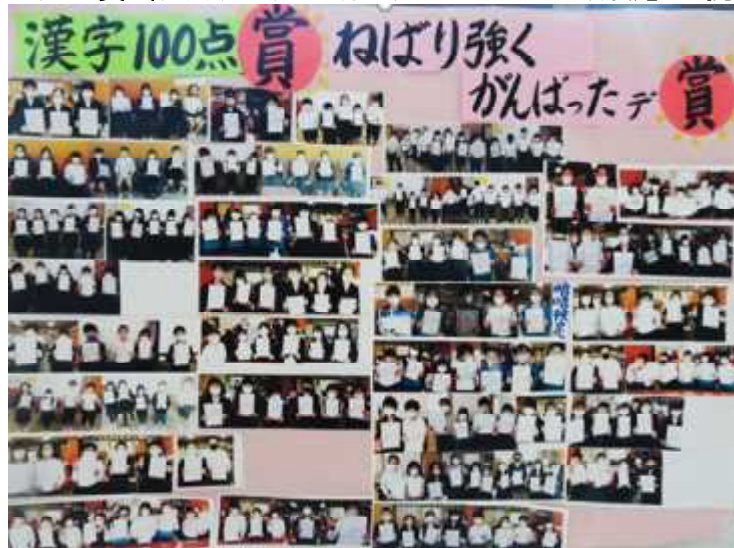 漢字100点賞
ねばり強く
がんばったデ賞